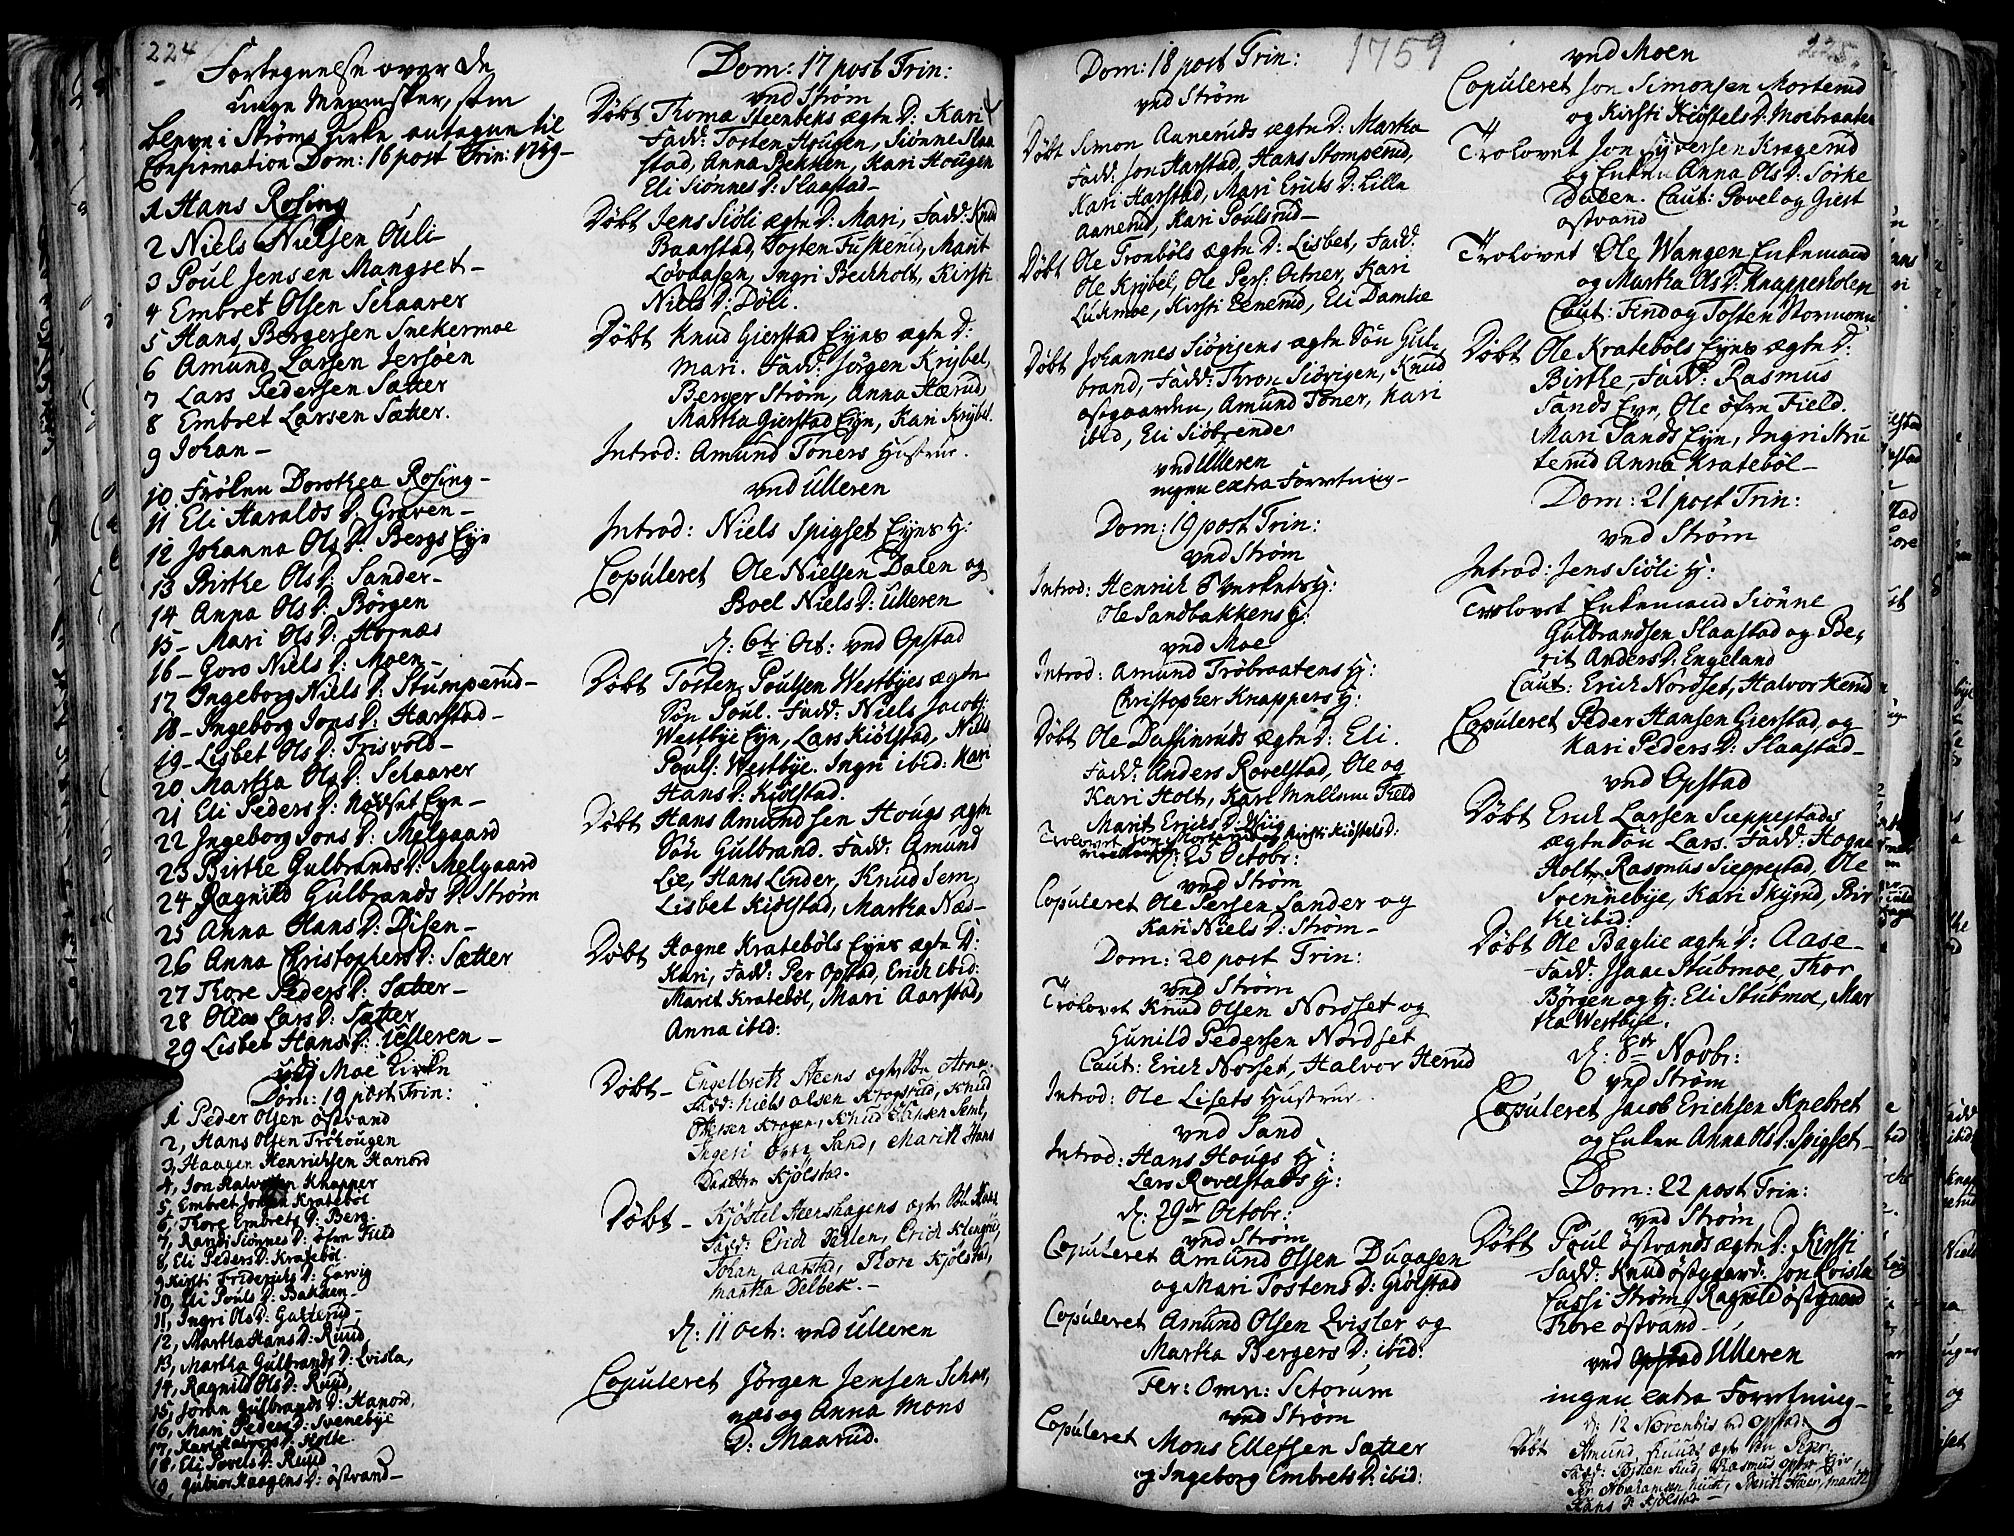 224
Fortegnelse over de
unge Mennisker, som
bleve i Strøms Kirke antagne til
Confirmation Dom: 16 post Trin: 1759
1 Hans Rosing
2 Niels Nielsen Ouli
3 Poul Jensen Mangset
4 Embret Olsen Schaarer
5 Hans Bergersen Snekermoe
6 Amund Larsen Jersøen
7 Lars Pedersen Sætter
8 Embret Larsen Sætter.
9 Johan
10 Frølen Dorothea Rosing
11 Eli Haralds D: Greven
12 Johanna Ols D: Bergs Eye
13 Birthe Ols D: Sander
14 Anna Ols D: Børgen
15 Mari Ols D: Hornæs
16 Goro Niels D: Moen
17 Ingeborg Niels D: Stumperud
18 Ingeborg Jons D: Harstad
19 Lisbet Ols D: Trisvold
20 Martha Ols D: Schaarer
21 Eli Peders D: Nordset Eye
22 Ingeborg Jons D: Melgaard
23 Birthe Gulbrands D: Melgaard
24 Ragnild Gulbrands D: Strøm
25 Anna Hans D: Disen
26 Anna Christophers D: Sætter
27 Thore Peders D: Sætter
28 Olea Lars D: Sætter
29 Lisbet Hans D: Ulleren
ved Moe Kirke
Dom: 19 post Trin:
1 Peder Olsen Østvand
2, Hans Olsen Trøhougen
3, Haagen Henrichsen Hanord
4, Jon Halvorsen Knapper
5, Embret Kratebøl
6, Thore Embrets D: Berg
7, Randi Siønnes D: øfre Field
8, Eli Peders D: Kratebøl
9 Kirsti Friderichs D: Garvig
10, Eli Pouls D: Bakken
11, Ingri Ols D: Galterud
12, Martha Hans D: Ruud
13, Martha Gulbrands D: Qvisla,
14, Ragnild Ols D: Ruud,
15, Joran Gulbrands D: Hanord,
16, Mari Peders D: Svenebye
17, Kari Halvors D: Holte
18, Eli Povels D: Ruud
19, Haagens D: østvand
Dom: 17 post Trin:
ved Strøm
Døbt Thoma Steenbeks ægte D: Kari
Fadd: Tosten Hougen, Siønne Slaa
stad, Anna Bekken, Kari Hougen
Eli Siønnes D: Slaastad
Døbt Jens Siøli ægte D: Mari, Fadd: Knud
Baarstad, Tosten Fuskerud, Marit
Lovaasen, Ingri Beckholt, Kirsti
Niels D: Døli.
Døbt Knud Gierstad Eyes ægte D:
Mari. Fadd: Jørgen Krybel,
Berger Strøm, Anna Hærud,
Martha Gierstad Eye, Kari Krybel.
Introd: Amund Toners Hustrue.
ved Ulleren
Introd: Niels Spigset Eyes H:
Copuleret Ole Nielsen Dalen og
Boel Niels D: Ulleren
d: 6te Oct: ved Opstad
Døbt Tosten Poulsen Westbyes ægte
Søn Poul. Fadd: Niels Jacobs:
Westbye Eye, Lars Kiølstad, Niels
Pouls: Westbye. Ingri ibid: Kari
Hans D: Kiølstad.
Døbt Hans Amundsen Hougs ægte
Søn Gulbrand. Fadd: Amund
Lie, Hans Linder, Knud Sem,
Lisbet Kiølstad, Martha Næs
Døbt Hogne Kratebøls Eyes ægte D:
Kari, Fadd: Per Opstad, Erich ibid:
Marit Kratebøl, Mari Aarstad,
Anna ibid:
Døbt Engelbreth Neens ægte Søn Arne
Fadd: Niels Olsen Krogstad, Knud
Ottersen Krogen, Knud Hansen Semb,
Ingeri Sand, Marith Hans
Daatter Kjølstad.
Døbt Kjøstel Steenshagens ægte Søn Hans
Fadd: Erich Tallen, Erich Klingrud,
Johan Aarstad, Thore Kjølstad,
Martha Delbek.
d: 11 Oct: ved Ulleren
Copuleret Jørgen Jensen Schar,
næs og Anna Mons
D: Maarud.
1759
Dom: 18 post Trin:
ved Strøm
Døbt Simon Aaneruds ægte D: Martha
Fadd: Jon Harstad, Hans Stomperud,
Kari Harstad, Mari Erichs D: Lille
Aanerud, Kari Poulsrud
Døbt Ole Tronbøls ægte D: Lisbet, Fadd:
Ole Krybel, Ole Pers: Ocner, Kari
Lukmoe, Kirsti Penerud, Eli Damlie
Døbt Johannes Siørigens ægte Søn Gul,
brand, Fadd: Thron Siørigen, Knud
Opgaarden, Amund Toner, Kari
ibid, Eli Siøbrende
ved Ulleren
ingen extra Forretning
Dom: 19 post Trin:
ved Strøm
Introd: Henrich Verkets H:
Ole Sandbakkens H:
ved Moe
Introd: Amund Trøbraatens H:
Christopher Knappers H:
Døbt Ole Dassinruds Ægte D: Eli.
Fadd: Anders Rovelstad, Ole og
Kari Holt, Kari Mellem Field
Marit Erichs D: Wiig
Trolovet Jon Morterud og Kirsti Kiøstels D:
Moebraaten d: 25 Octobr:
ved Strøm
Copuleret Ole Persen Sander og
Kari Niels D: Strøm
Dom: 20 post Trin:
ved Strøm
Trolovet Knud Olsen Nordset og
Gunild Pedersen Nordset
Caut: Erich Norset, Halvor Herud
Introd: Ole Lisets Hustrue
ved Sand
Introd: Hans Hougs H:
Lars Rovelstads H:
d: 29de Octobr:
ved Strøm
Copuleret Amund Olsen Dugaasen
og Mari Tostens D: Giølstad
Copuleret Amund Olsen Qvisler og
Martha Bergers D: ibid:
Fer: Omn: Sctorum
ved Strøm
Copuleret Mons Ellefsen Sætter
og Ingeborg Embrets D: ibid:
225.
ved Moen
Copuleret Jon Simonsen Morterud
og Kirsti Kiøstels D: Moebraaten
Trolovet Jon Syversen Kragerud
og Enken Anna Ols D: Sørke
Dalen. Caut: Povel og Giest
østvand
Trolovet Ole Wangen Enkemand
og Martha Ols D: Knapperholen
Caut: Find og Tosten Normoen
Døbt Ole Kratebøls Eyes ægte D:
Birthe, Fadd: Rasmus
Sands Eye, Ole øfre Field.
Mari Sands Eye, Ingri Stru
terud Anna Kratebøl
Dom: 21 post Trin:
ved Strøm
Introd: Jens Siøli H:
Trolovet Enkemand Siønne
Gulbrandsen Slaastad og Be,
rit Anders D: Engeland
Caut: Erich Nordset, Halvor Herud
Copuleret Peder Hansen Gierstad, og
Kari Peders D: Slaastad
ved Opstad
Døbt Erich Larsen Sieppestads
ægte Søn Lars. Fadd: Hogne
Holt, Rasmus Sieppestad, Ole
Svennebye, Kari Skyrud, Bir
the ibid:
Døbt Ole Baglie ægte D: Aase
Fadd: Isaac Stubmoe, Thor
Børgen og H: Eli Stubmoe, Mar
tha Westbye.
d: 8de Novbr:
ved Strøm
Copuleret Jacob Erichsen Knebret
og Enken Anna Ols D: Spigset
Dom: 22 post Trin:
ved Strøm
Døbt Poul østvands ægte D: Kirsti
Fadd: Knud østgaard: Jon Qvisla
Cassi Strøm, Ragnild østgaard
Thore østvand
ved Ulleren
ingen extra Forretning
d: 12 Novembris ved Opstad
Døbt Amund Ruuds ægte Søn Peder
Fadd: Tosten Rud, Rasmus
Per Abrahamsen Berith Marith
Hans D: Kjølstad